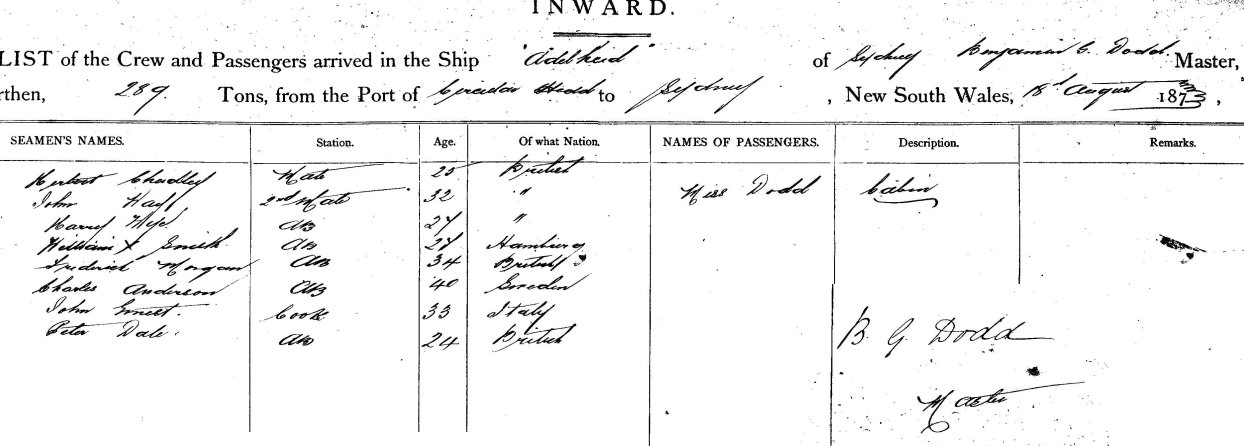 INWARD.
LIST of the Crew and Passengers arrived in the Ship "Adelheid" of Sydney Benjamin G. Dodd Master,
rthen, 289 Tons, from the Port of Head to Sydney, New South Wales, 18th August 1873,
SEAMEN'S NAMES. Station. Age. Of what Nation. NAMES OF PASSENGERS. Description. Remarks.
Herbert Chudley Mate 25 British
John 2nd Mate 32 " Miss Dodd Cabin
Harry AB 27 "
William X Smith AB 27 Hamburg
Frederick Morgan AB 34 British
Charles Anderson AB 40 Sweden
John Cook 33 Italy
Peter Dale. AB 24 British
B. G. Dodd
Master